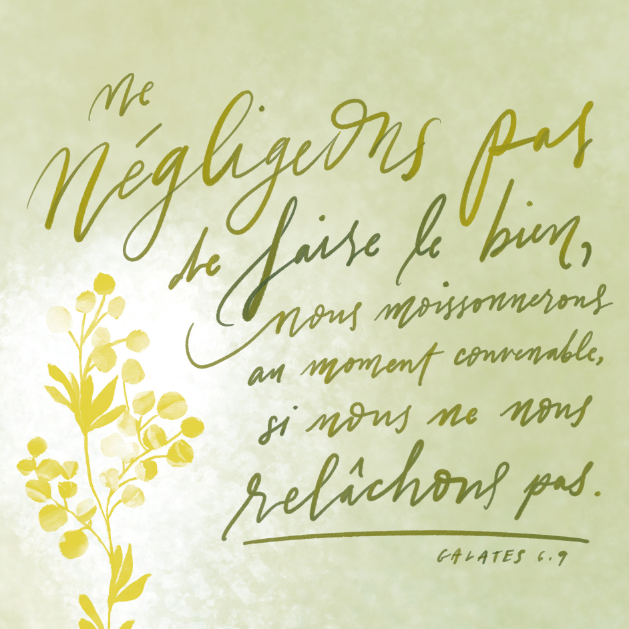 Ne
Négligeons pas
de faire le bien,
nous moissonnerons
au moment convenable,
si nous ne nous
relâchons pas.
GALATES 6.9